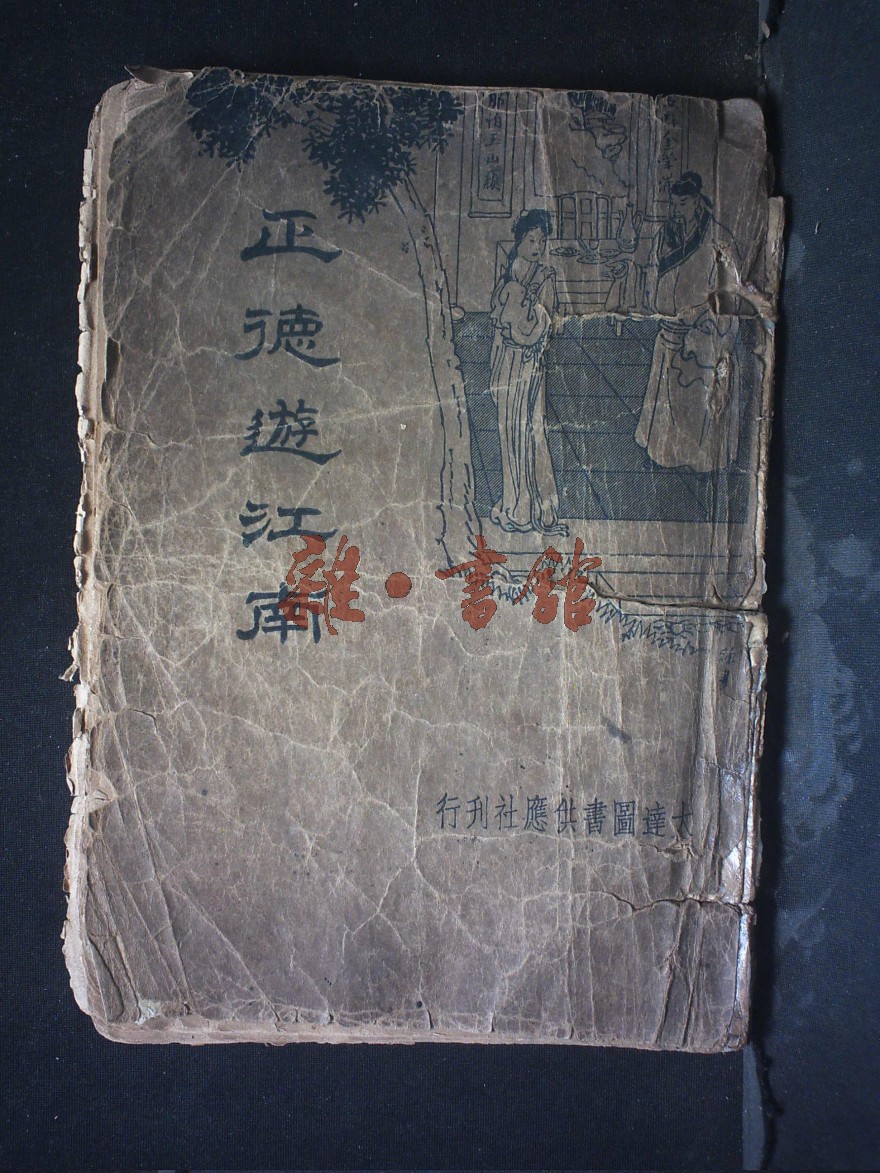 正德遊江南
大達圖書供應社刊行
雜·書館